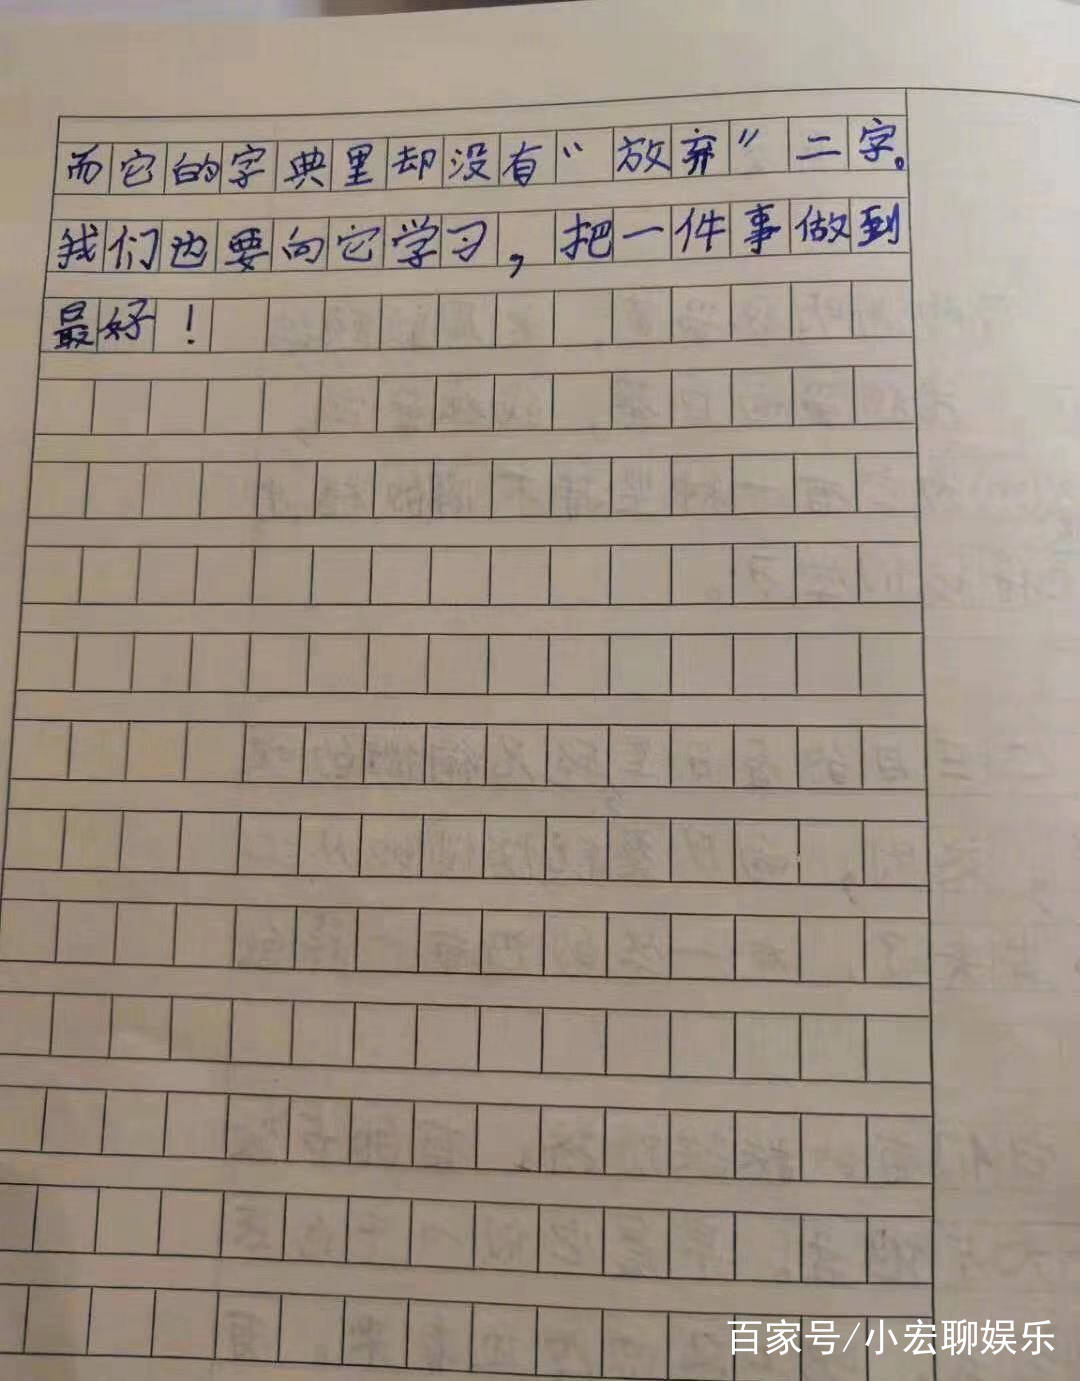 而它的字典里却没有“放弃”二字。
我们也要向它学习，把一件事做到
最好！
百家号/小宏聊娱乐